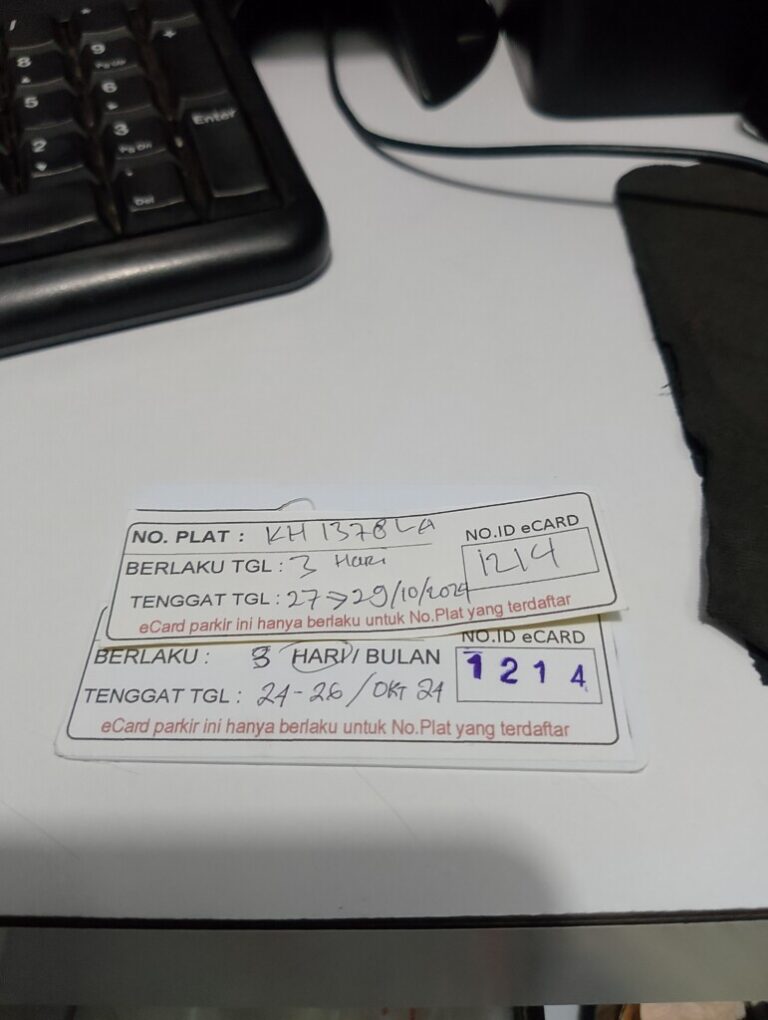 /
8
9
Pg Up
+
5
6
2
3
Pg Dn
Enter
.
Del
NO. PLAT : KH 1378 LA
NO.ID eCARD
1214
BERLAKU TGL : 3 Hari
TENGGAT TGL : 27 → 29/10/2024
eCard parkir ini hanya berlaku untuk No.Plat yang terdaftar
NO.ID eCARD
BERLAKU : 3 HARI / BULAN
1 2 1 4
TENGGAT TGL : 24 - 26 / OKT 24
eCard parkir ini hanya berlaku untuk No.Plat yang terdaftar